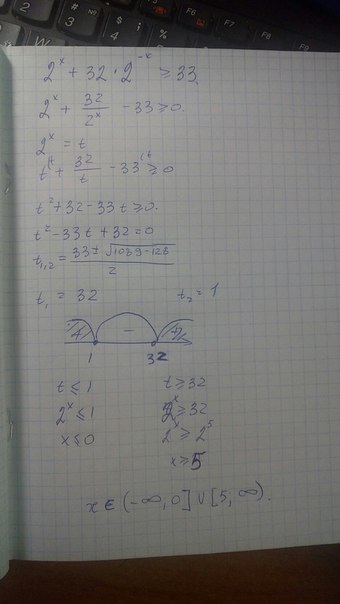 2^x + 32 · 2^{-x} ≥ 33
2^x + 32/2^x - 33 ≥ 0.
2^x = t
t^{/t} + 32/t - 33^{/t} ≥ 0
t² + 32 - 33t ≥ 0.
t² - 33t + 32 = 0
t_{1,2} = (33 ± √(1039 - 128))/2
t₁ = 32 t₂ = 1
+ - +
1 32
t ≤ 1 t ≥ 32
2^x ≤ 1 2^x ≥ 32
x ≤ 0 2^x ≥ 2^5
x ≥ 5
x ∈ (-∞, 0] ∪ [5, ∞).